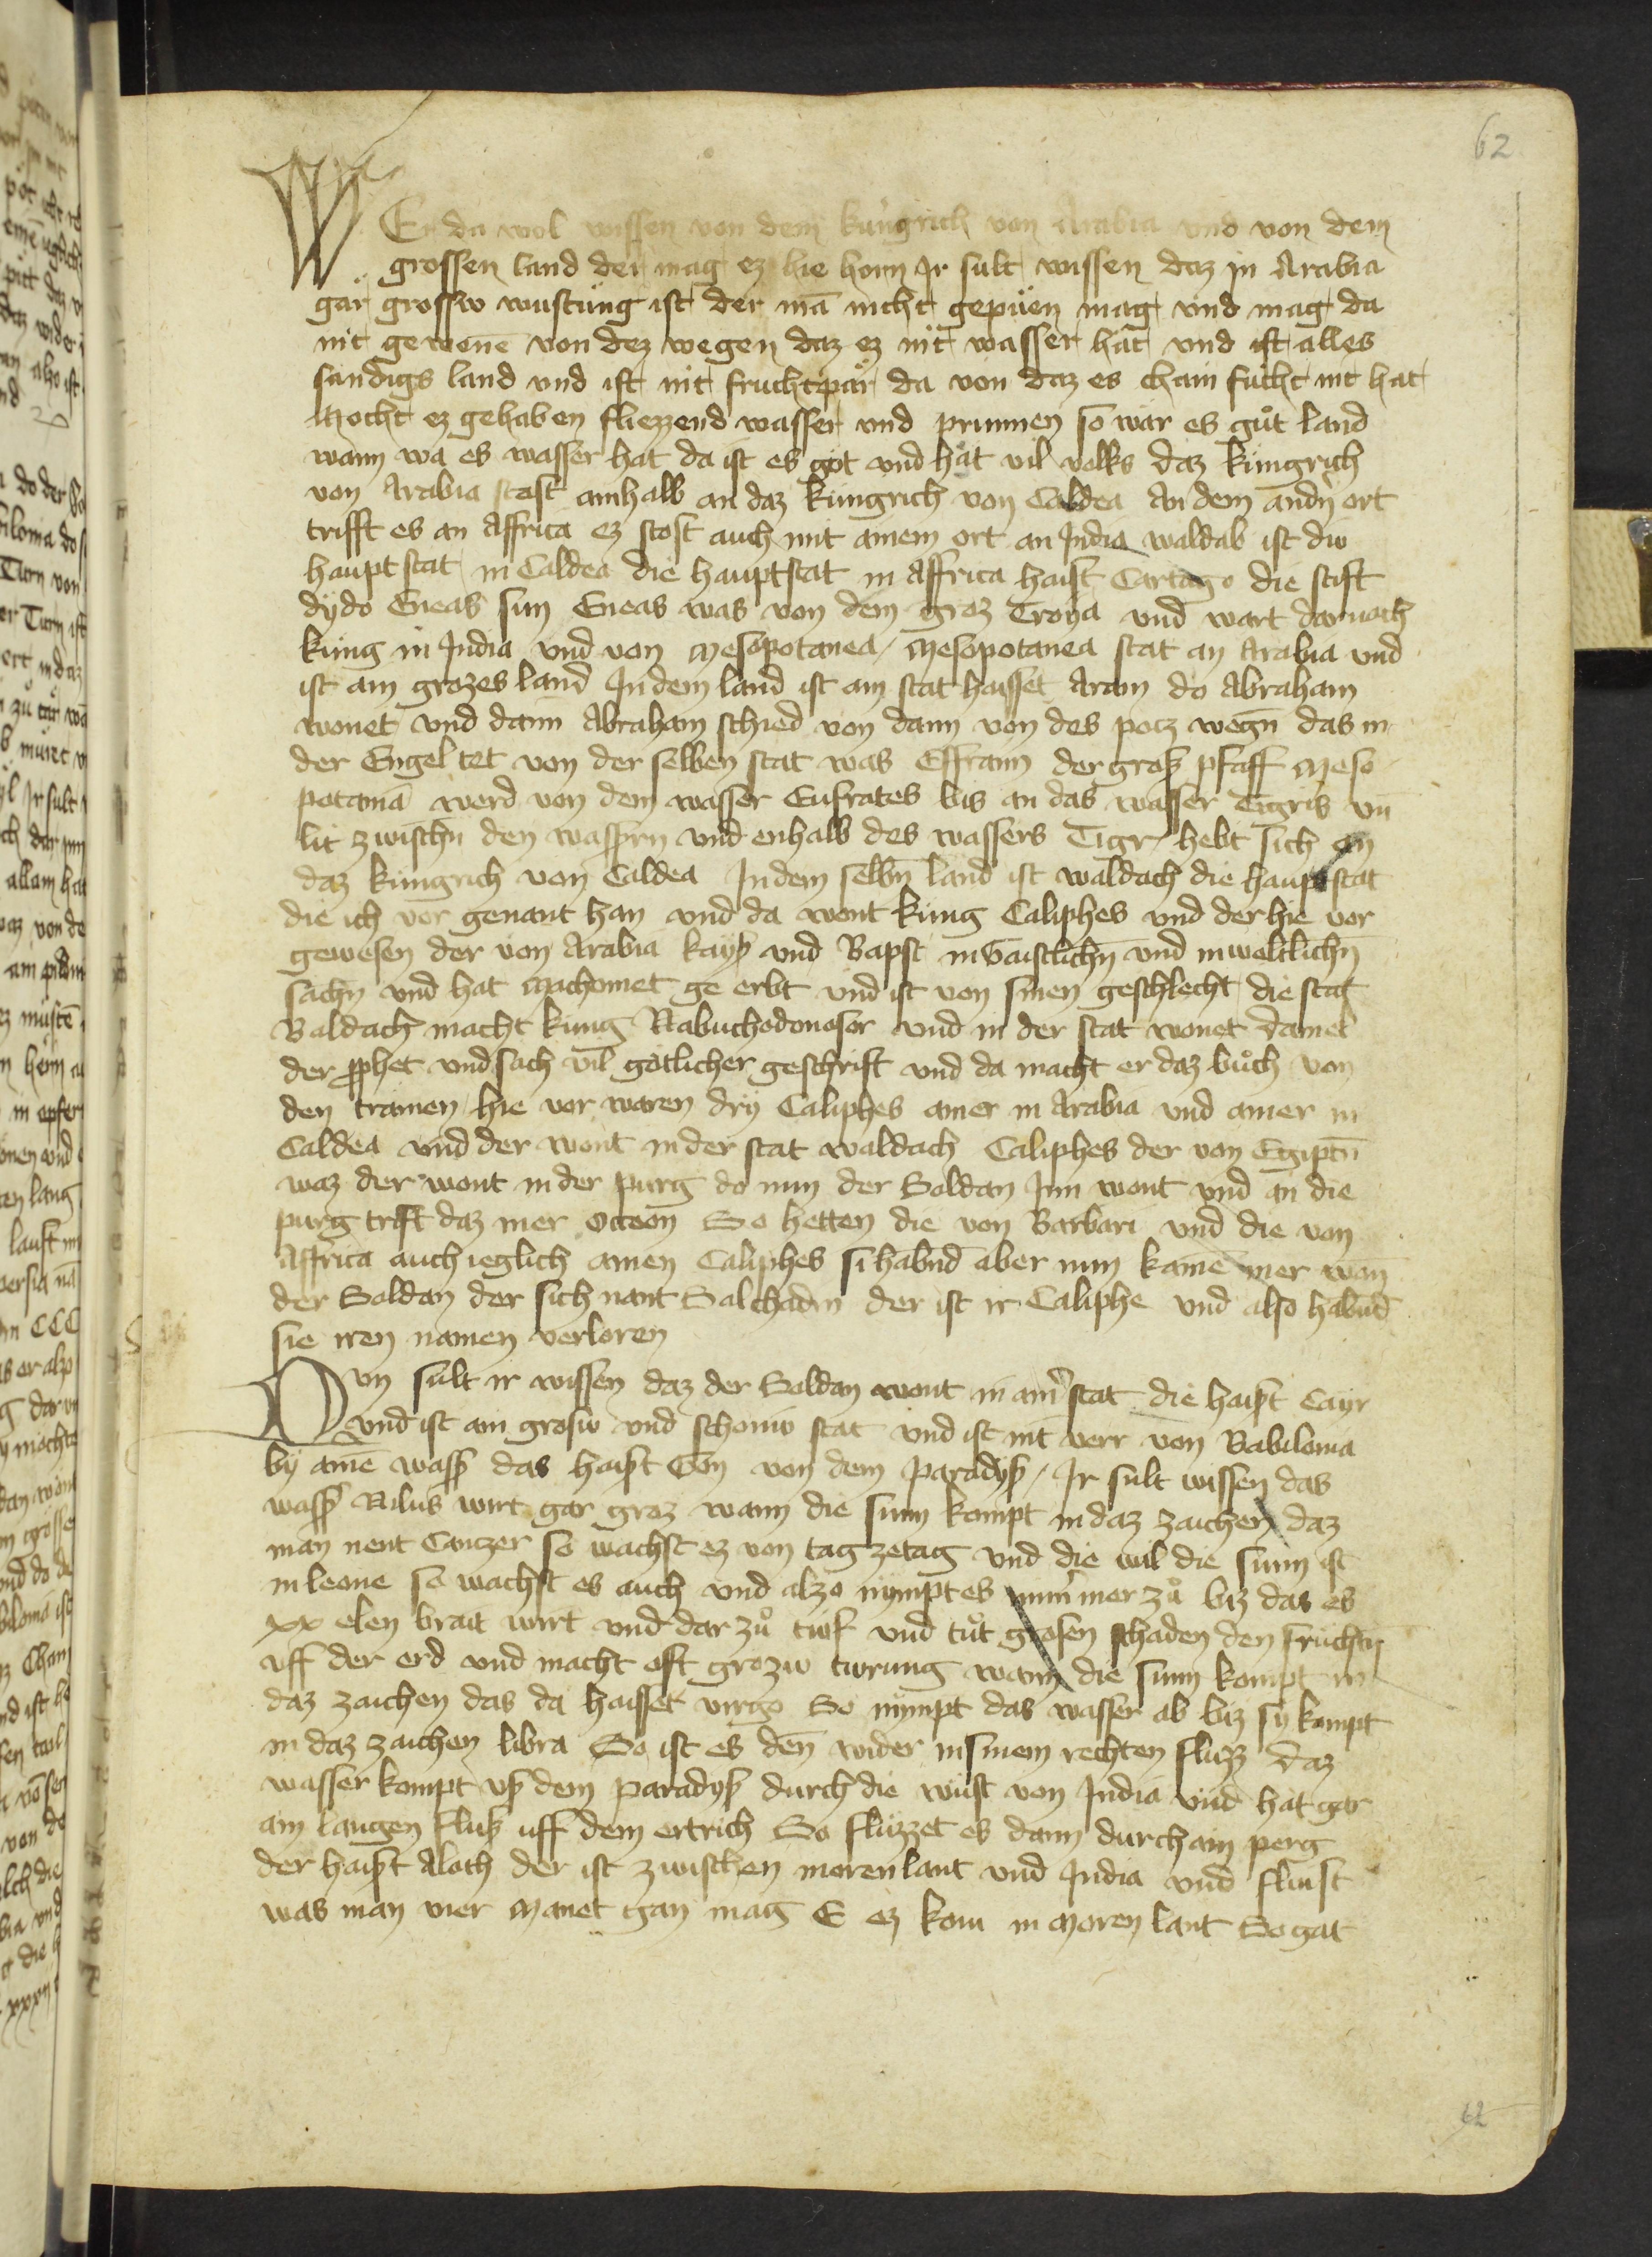 62
WEr da wol wissen von dem kúngrich von Arabia vnd von dem
grossen land der mag ez hie horn Jr sult wissen daz in Arabia
gar grossw wustúng ist der mā nicht gepúen mag vnd mag da
nit gewone von dez wegen daz ez nit wasser hat vnd ist alles
sandigs land vnd ist nit fruchtpar da von daz es chain fúcht nit hat
Mocht ez gehaben fliezzend wasser vnd prunnen so wär es gůt land
wann wa es wasser hat da ist es got vnd hat vil volks daz kúngrich
von Arabia stost ainhalb an daz kúngrich von Caldea An dem andn̄ ort
trifft es an Affrica ez stost auch mit ainem ort an Jndia waldab ist diw
haupt stat in Caldea die hauptstat in Affrica haist Cartago die stift
dydo Eneas sun Eneas was von dem groz Troya vnd wart dar nach
kúng in Jndia vnd von Mesopotanea / Mesopotanea stat an Arabia vnd
ist ain grozes land Jn dem land ist ain stat haisset Aram do Abraham
wonet vnd dann Abraham schied von dann von des potz wegn̄ das in
der Engel tet von der selben stat was Effraim der groß pfaff Meso
potamā werd von dem wasser Eufrates bis an das wasser Tigris vn̄
lit zwischn̄ den wassern vnd enhalb des wassers Tigr hebt sich an
daz kúngrich von Caldea Jn dem selbn̄ land ist waldach die haupt stat
die ich vor genant han vnd da wont kúng Caliphes vnd der hie vor
gewesen der von Arabia kayß vnd Bapst in Gaistlichn̄ vnd in weltlichn̄
sachn̄ vnd hat Machomet ge erbt vnd ist von sinen geschlecht die stat
Baldach macht kúng Nabuchodonosor vnd in der stat wonet daniel
der ꝓphet vnd sach vil gotlicher geschrift vnd da macht er daz bůch von
den tramen / hie vor waren dry Caliphes ainer in Arabia vnd ainer in
Caldea vnd der wont in der stat waldach Caliphes der von Egiptn̄
waz der wont in der purg do nun der Soldan Jnn wont vnd an die
purg trift daz mer Occeon So hetten die von Barbari vnd die von
Affrica auch ieglich ainen Caliphes si habnd aber nun kainē mer wan
der Soldan der sich nant Salchadin der ist ir Caliphe vnd also habnd
sie iren namen verloren
Nvn sult ir wissen daz der Soldan wont in ainr̄ stat die haißt Cayr
vnd ist ain grosw vnd schoniw stat vnd ist nit verr von Babilonia
by ainē wasß das haißt Gon von dem paradyß / Jr sult wissen das
wasß Nilus wirt gar groz wann die sunn kompt in daz zaichen daz
man nent Canzer so wachst ez von tag zetag vnd die wil die sunn ist
in leone so wachst es auch vnd alzo nympt es imm̄ mer zů biz das es
xx elen brait wirt vnd dar zů tiuf vnd tůt grosen schaden den fruchtn
vff der erd vnd macht oft grozw turung wann die sunn kompt in
daz zaichen das da haisset virgo So nympt das wasser ab biz sy kompt
in daz zaichen libra So ist es den wider in sinem rechten flusz daz
wasser kompt vß dem paradyß durch die wúst von Jndia vnd hat gar
ain langen fluß uff dem ertrich So fluzzet es dann durch ain perg
der haißt Aloth der ist zwischen morenlant vnd Jndia vnd fliust
was man vier Manet gan mag E ez kom in Moren lant So gat
62